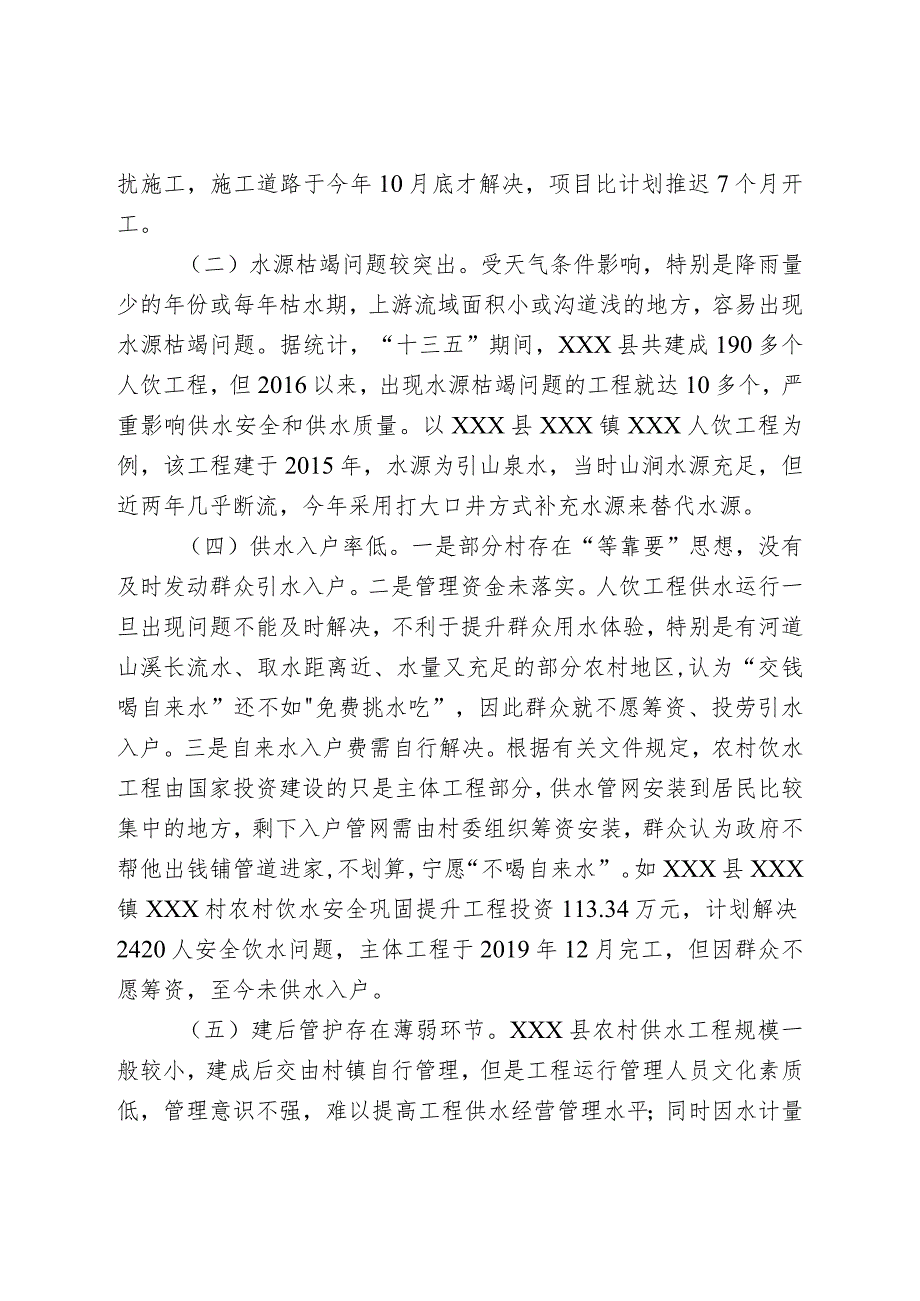 扰施工，施工道路于今年 10 月底才解决，项目比计划推迟 7 个月开
工。
（二）水源枯竭问题较突出。受天气条件影响，特别是降雨量
少的年份或每年枯水期，上游流域面积小或沟道浅的地方，容易出现
水源枯竭问题。据统计，“十三五”期间，XXX 县共建成 190 多个
人饮工程，但 2016 以来，出现水源枯竭问题的工程就达 10 多个，严
重影响供水安全和供水质量。以 XXX 县 XXX 镇 XXX 人饮工程为
例，该工程建于 2015 年，水源为引山泉水，当时山涧水源充足，但
近两年几乎断流，今年采用打大口井方式补充水源来替代水源。
（四）供水入户率低。一是部分村存在“等靠要”思想，没有
及时发动群众引水入户。二是管理资金未落实。人饮工程供水运行一
旦出现问题不能及时解决，不利于提升群众用水体验，特别是有河道
山溪长流水、取水距离近、水量又充足的部分农村地区,认为“交钱
喝自来水”还不如"免费挑水吃”，因此群众就不愿筹资、投劳引水
入户。三是自来水入户费需自行解决。根据有关文件规定，农村饮水
工程由国家投资建设的只是主体工程部分，供水管网安装到居民比较
集中的地方，剩下入户管网需由村委组织筹资安装，群众认为政府不
帮他出钱铺管道进家,不划算，宁愿“不喝自来水”。如 XXX 县 XXX
镇 XXX 村农村饮水安全巩固提升工程投资 113.34 万元，计划解决
2420 人安全饮水问题，主体工程于 2019 年 12 月完工，但因群众不
愿筹资，至今未供水入户。
（五）建后管护存在薄弱环节。XXX 县农村供水工程规模一
般较小，建成后交由村镇自行管理，但是工程运行管理人员文化素质
低，管理意识不强，难以提高工程供水经营管理水平；同时因水计量